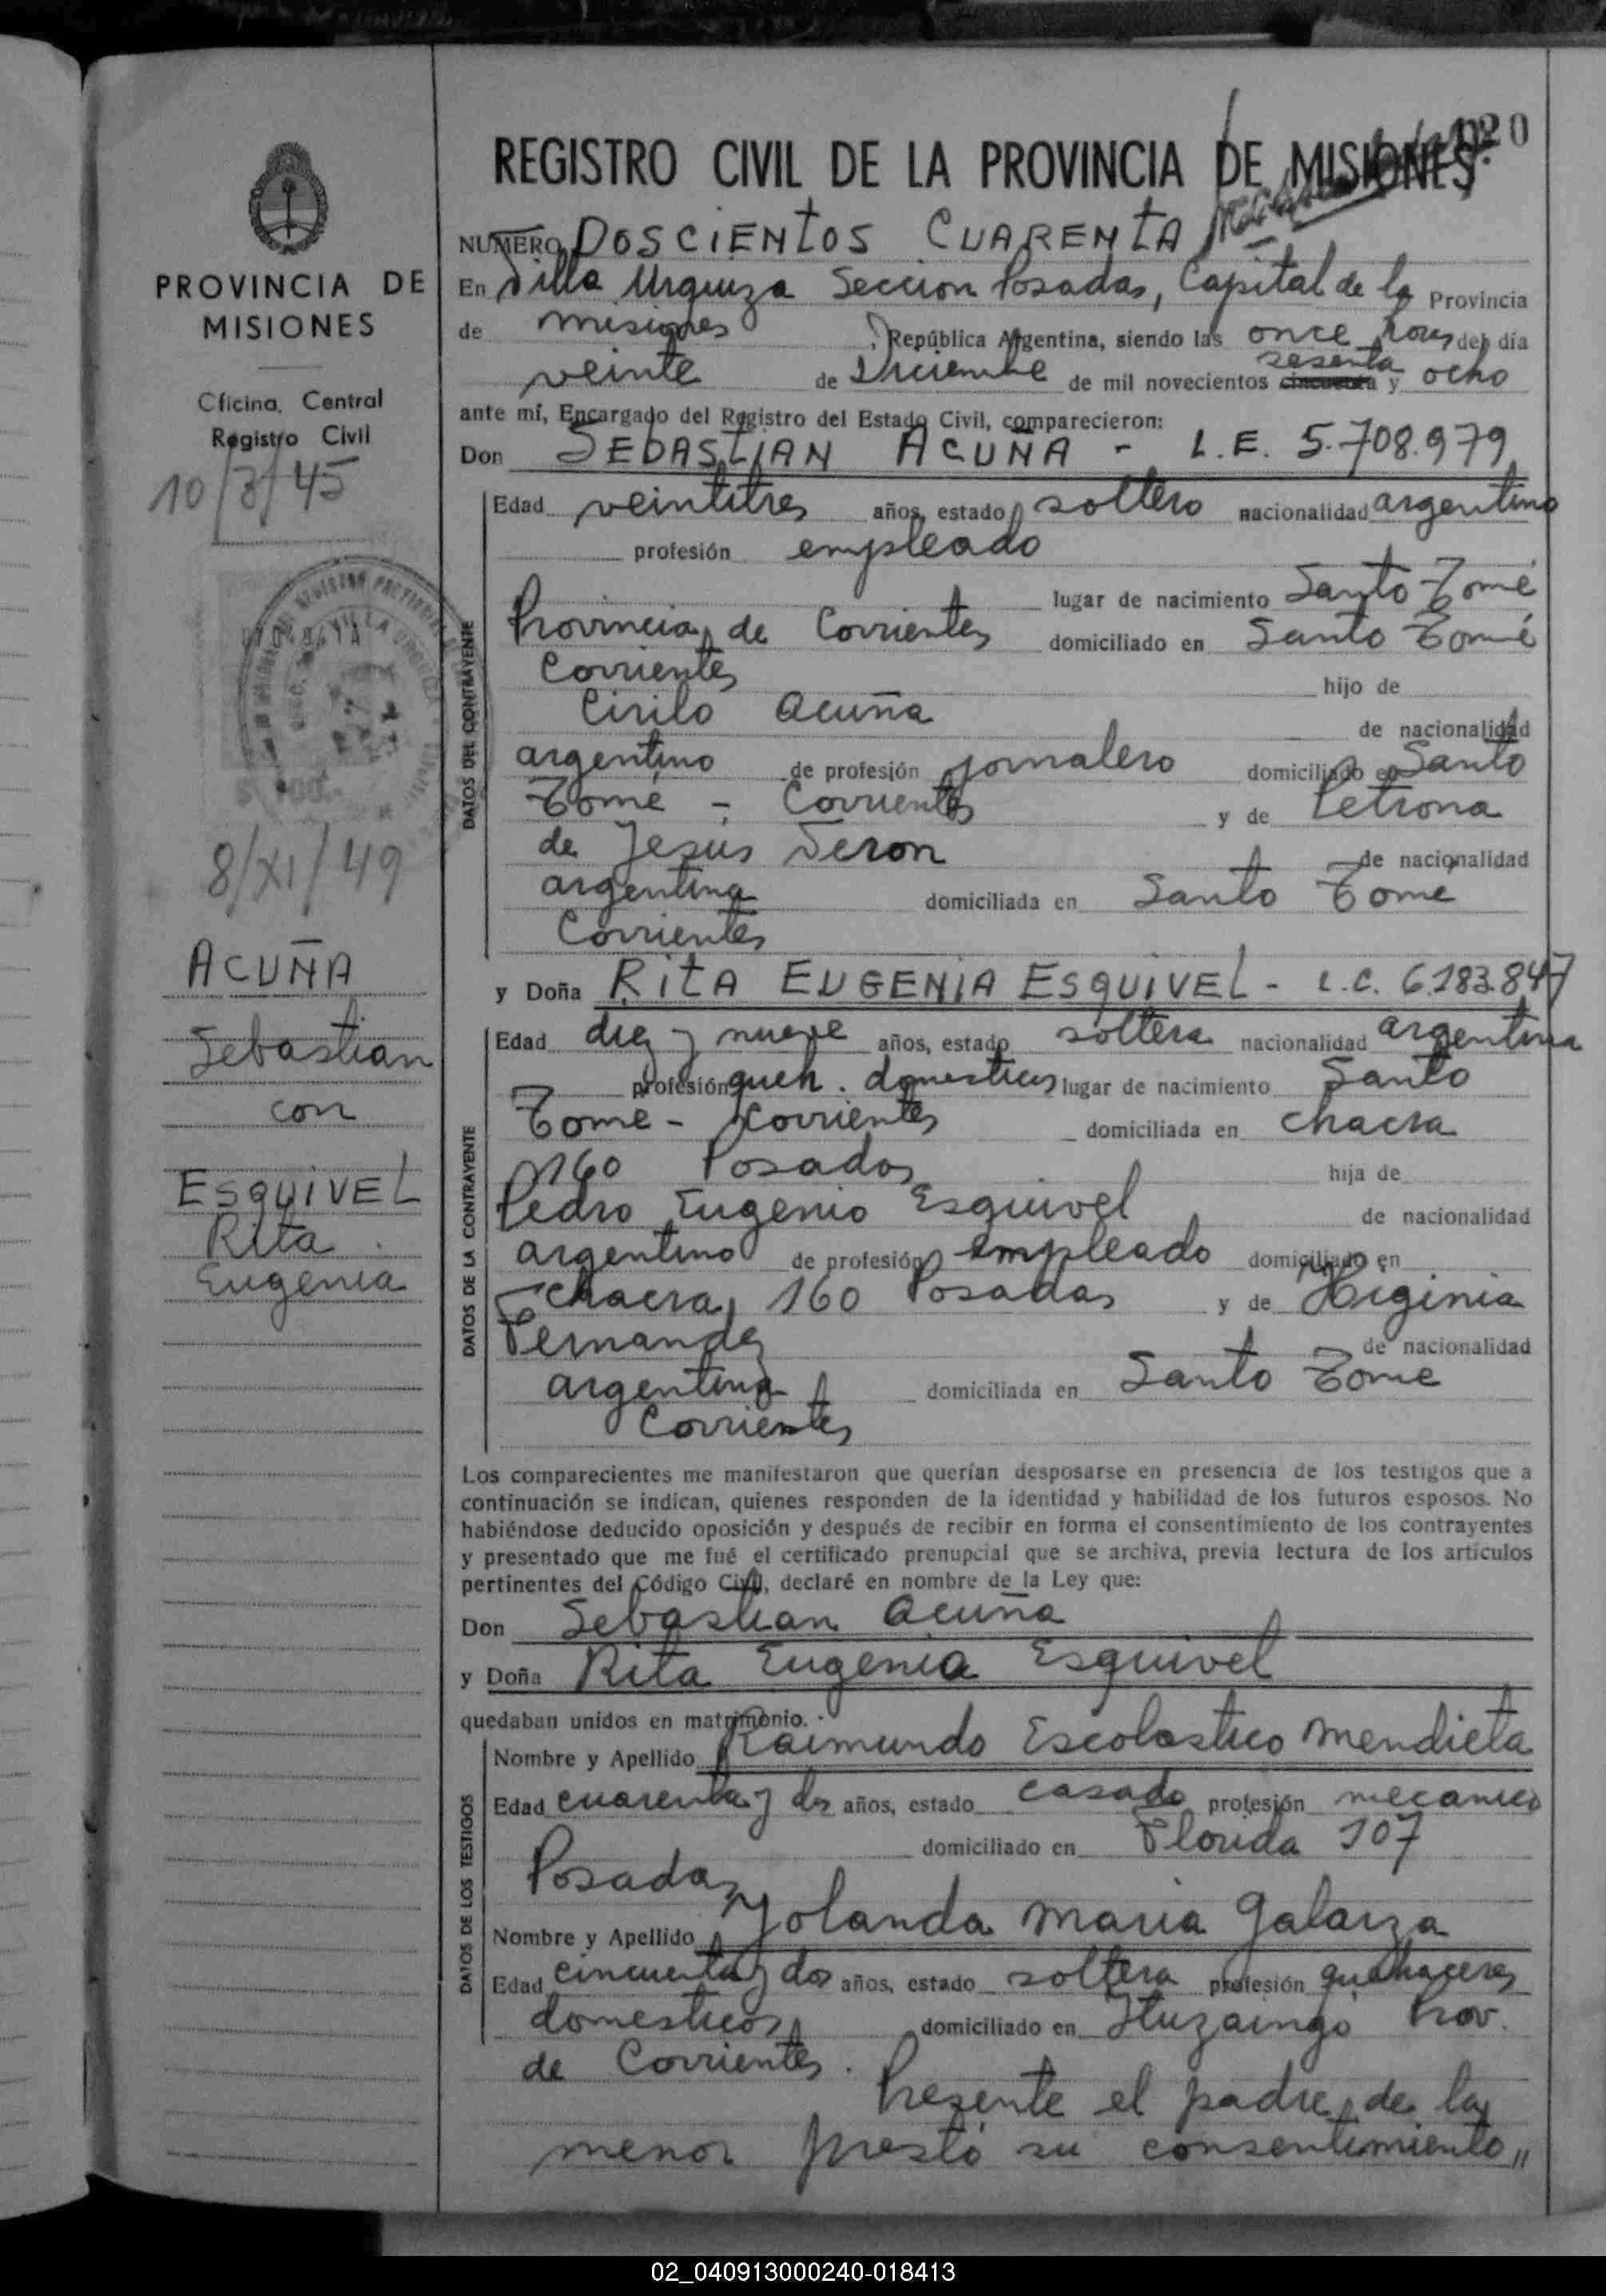 120
REGISTRO CIVIL DE LA PROVINCIA DE MISIONES
NUMERO DOSCIENTOS CUARENTA
En Villa Urquiza Seccion Posadas, Capital de la Provincia
de misiones, República Argentina, siendo las once horas del día
veinte de Diciembre de mil novecientos cincuenta sesenta y ocho
ante mí, Encargado del Registro del Estado Civil, comparecieron:
Don SEBASTIAN ACUÑA - L.E. 5.708.979
DATOS DEL CONTRAYENTE
Edad veintitres años, estado soltero nacionalidad argentino
profesión empleado
lugar de nacimiento Santo Tomé
Provincia de Corrientes domiciliado en Santo Tomé
Corrientes hijo de
Cirilo Acuña de nacionalidad
argentino de profesión jornalero domiciliado en Santo
Tomé - Corrientes y de Petrona
de Jesús Veron de nacionalidad
argentina domiciliada en Santo Tome
Corrientes
y Doña RITA EUGENIA ESQUIVEL - L.C. 6.183.847
DATOS DE LA CONTRAYENTE
Edad diez y nueve años, estado soltera nacionalidad argentina
profesión queh. domesticos lugar de nacimiento Santo
Tome - Corrientes domiciliada en chacra
160 Posadas hija de
Pedro Eugenio Esquivel de nacionalidad
argentino de profesión empleado domiciliado en
Chacra 160 Posadas y de Higinia
Fernandez de nacionalidad
argentina domiciliada en Santo Tome
Corrientes
Los comparecientes me manifestaron que querían desposarse en presencia de los testigos que a
continuación se indican, quienes responden de la identidad y habilidad de los futuros esposos. No
habiéndose deducido oposición y después de recibir en forma el consentimiento de los contrayentes
y presentado que me fué el certificado prenupcial que se archiva, previa lectura de los artículos
pertinentes del Código Civil, declaré en nombre de la Ley que:
Don Sebastian Acuña
y Doña Rita Eugenia Esquivel
quedaban unidos en matrimonio.
DATOS DE LOS TESTIGOS
Nombre y Apellido Raimundo Escolastico Mendieta
Edad cuarenta y dos años, estado casado profesión mecanico
domiciliado en Florida 107
Posadas
Nombre y Apellido Yolanda Maria Galarza
Edad cincuenta y dos años, estado soltera profesión quehaceres
domesticos domiciliado en Ituzaingó Prov.
de Corrientes.
Presente el padre de la
menor prestó su consentimiento,,
PROVINCIA DE
MISIONES
Oficina Central
Registro Civil
10/3/45
8/XI/49
ACUÑA
Sebastian
con
ESQUIVEL
Rita
Eugenia
02_040913000240-018413